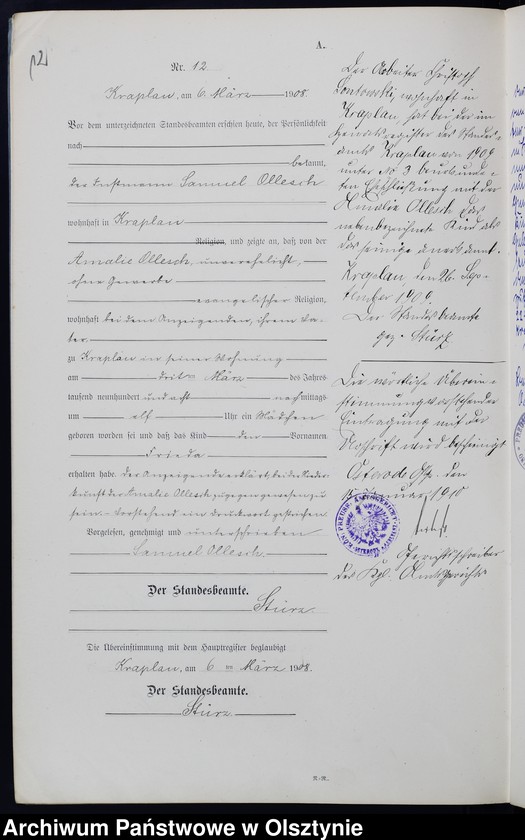 12
A.
Nr. 12
Kraplau, am 6. März 1908.
Vor dem unterzeichneten Standesbeamten erschien heute, der Persönlichkeit
nach
bekannt,
der Instmann Samuel Ollesch
wohnhaft in Kraplau
Religion, und zeigte an, daß von der
Amalie Ollesch, unverehelicht,
ohne Gewerbe
evangelischer Religion,
wohnhaft bei dem Anzeigenden, ihrem Va-
ter
zu Kraplau in seiner Wohnung
am dritten März des Jahres
tausend neunhundert und acht nachmittags
um elf Uhr ein Mädchen
geboren worden sei und daß das Kind den Vornamen
Frieda
erhalten habe. Der Anzeigende erklärt, bei der Nieder-
kunft der Amalie Ollesch zugegen gewesen zu
sein. Vorstehend ein Druckwort gestrichen.
Vorgelesen, genehmigt und unterschrieben
Samuel Ollesch
Der Standesbeamte.
Sturz
Die Übereinstimmung mit dem Hauptregister beglaubigt
Kraplau, am 6 ten März 1908.
Der Standesbeamte.
Sturz
Der Arbeiter Christoph
wohnhaft in
Kraplau, hat bei der im
Heiratsregister des Standes-
amts Kraplau von 1909
unter No 3 beurkunde-
ten Eheschließung mit der
Amalie Ollesch das
nebenbezeichnete Kind als
das seinige anerkannt.
Kraplau, den 26. Sep-
tember 1909.
Der Standesbeamte
gez. Sturz
Die wörtliche Überein-
stimmung vorstehender
Eintragung mit der
Urschrift wird bescheinigt
Osterode Opr. den
Januar 1910
Gerichtsschreiber
des Kgl. Amtsgerichts
KÖN. PREUSS. AMTSGERICHT
R.-R.
Archiwum Państwowe w Olsztynie